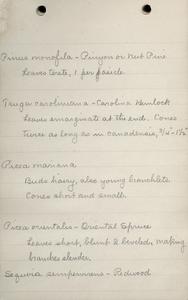 Pinus monofila - Pinyon or Nut Pine
Leaves terete, 1 per fascicle.
Tsuga caroliniana - Carolina Hemlock
Leaves emarginate at the end. Cones
twice as long as in canadensis, 3/4"-1 1/2"
Picea mariana
Buds hairy, also young branchlets
Cones short and small.
Picea orientalis - Oriental Spruce
Leaves short, blunt & beveled, making
branches slender.
Sequoia sempervirens - Redwood